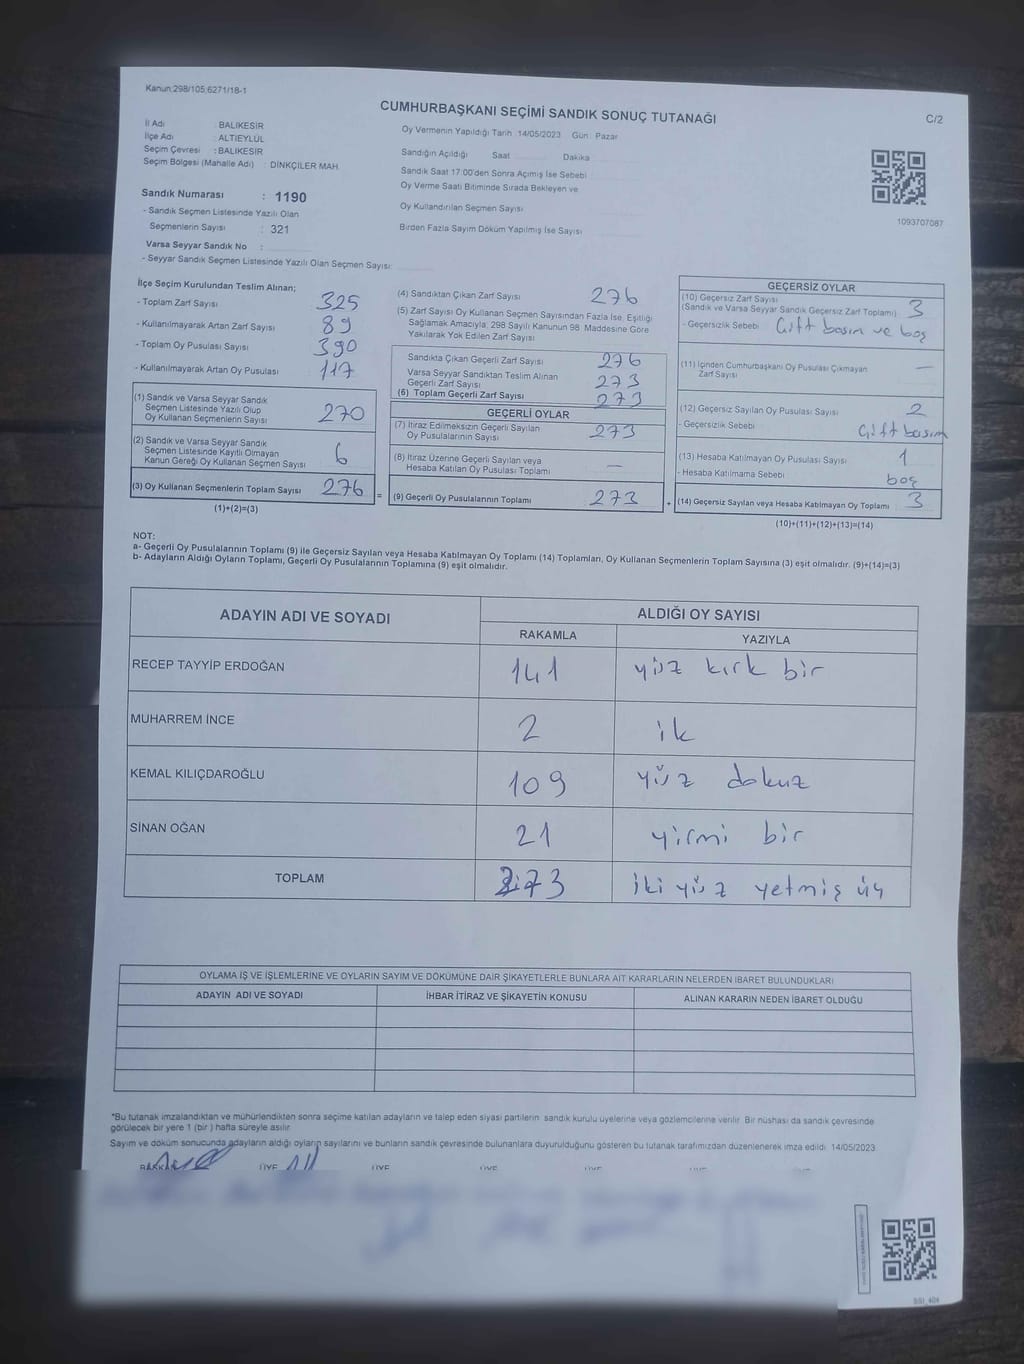 Kanun:298/105;6271/18-1
CUMHURBAŞKANI SEÇİMİ SANDIK SONUÇ TUTANAĞI
C/2
İl Adı : BALIKESİR
İlçe Adı : ALTIEYLÜL
Seçim Çevresi : BALIKESİR
Seçim Bölgesi (Mahalle Adı) : DİNKÇİLER MAH.
Oy Vermenin Yapıldığı Tarih : 14/05/2023 Gün : Pazar
Sandığın Açıldığı Saat Dakika
Sandık Saat 17:00'den Sonra Açımış İse Sebebi
Oy Verme Saati Bitiminde Sırada Bekleyen ve
Oy Kullandırılan Seçmen Sayısı
Birden Fazla Sayım Döküm Yapılmış İse Sayısı
1093707087
Sandık Numarası : 1190
- Sandık Seçmen Listesinde Yazılı Olan
Seçmenlerin Sayısı : 321
Varsa Seyyar Sandık No :
- Seyyar Sandık Seçmen Listesinde Yazılı Olan Seçmen Sayısı:
İlçe Seçim Kurulundan Teslim Alınan;
- Toplam Zarf Sayısı 325
- Kullanılmayarak Artan Zarf Sayısı 89
- Toplam Oy Pusulası Sayısı 390
- Kullanılmayarak Artan Oy Pusulası 117
(1) Sandık ve Varsa Seyyar Sandık
Seçmen Listesinde Yazılı Olup
Oy Kullanan Seçmenlerin Sayısı 270
(2) Sandık ve Varsa Seyyar Sandık
Seçmen Listesinde Kayıtlı Olmayan
Kanun Gereği Oy Kullanan Seçmen Sayısı 6
(3) Oy Kullanan Seçmenlerin Toplam Sayısı 276
(1)+(2)=(3)
(4) Sandıktan Çıkan Zarf Sayısı 276
(5) Zarf Sayısı Oy Kullanan Seçmen Sayısından Fazla İse, Eşitliği
Sağlamak Amacıyla; 298 Sayılı Kanunun 98. Maddesine Göre
Yakılarak Yok Edilen Zarf Sayısı
Sandıkta Çıkan Geçerli Zarf Sayısı 276
Varsa Seyyar Sandıktan Teslim Alınan
Geçerli Zarf Sayısı 273
(6) Toplam Geçerli Zarf Sayısı 273
GEÇERLİ OYLAR
(7) İtiraz Edilmeksizin Geçerli Sayılan
Oy Pusulalarının Sayısı 273
(8) İtiraz Üzerine Geçerli Sayılan veya
Hesaba Katılan Oy Pusulası Toplamı —
= (9) Geçerli Oy Pusulalarının Toplamı 273
GEÇERSİZ OYLAR
(10) Geçersiz Zarf Sayısı
(Sandık ve Varsa Seyyar Sandık Geçersiz Zarf Toplamı) 3
- Geçersizlik Sebebi Çift basım ve boş
(11) İçinden Cumhurbaşkanı Oy Pusulası Çıkmayan
Zarf Sayısı —
(12) Geçersiz Sayılan Oy Pusulası Sayısı 2
- Geçersizlik Sebebi Çift basım
(13) Hesaba Katılmayan Oy Pusulası Sayısı 1
- Hesaba Katılmama Sebebi boş
+ (14) Geçersiz Sayılan veya Hesaba Katılmayan Oy Toplamı 3
(10)+(11)+(12)+(13)=(14)
NOT:
a- Geçerli Oy Pusulalarının Toplamı (9) ile Geçersiz Sayılan veya Hesaba Katılmayan Oy Toplamı (14) Toplamları, Oy Kullanan Seçmenlerin Toplam Sayısına (3) eşit olmalıdır. (9)+(14)=(3)
b- Adayların Aldığı Oyların Toplamı, Geçerli Oy Pusulalarının Toplamına (9) eşit olmalıdır.
ADAYIN ADI VE SOYADI
ALDIĞI OY SAYISI
RAKAMLA YAZIYLA
RECEP TAYYİP ERDOĞAN 141 yüz kırk bir
MUHARREM İNCE 2 ik
KEMAL KILIÇDAROĞLU 109 yüz dokuz
SİNAN OĞAN 21 yirmi bir
TOPLAM 273 iki yüz yetmiş üç
OYLAMA İŞ VE İŞLEMLERİNE VE OYLARIN SAYIM VE DÖKÜMÜNE DAİR ŞİKAYETLERLE BUNLARA AİT KARARLARIN NELERDEN İBARET BULUNDUKLARI
ADAYIN ADI VE SOYADI İHBAR İTİRAZ VE ŞİKAYETİN KONUSU ALINAN KARARIN NEDEN İBARET OLDUĞU
*Bu tutanak imzalandıktan ve mühürlendikten sonra seçime katılan adayların ve talep eden siyasi partilerin sandık kurulu üyelerine veya gözlemcilerine verilir. Bir nüshası da sandık çevresinde
görülecek bir yere 1 (bir) hafta süreyle asılır.
Sayım ve döküm sonucunda adayların aldığı oyların sayılarını ve bunların sandık çevresinde bulunanlara duyurulduğunu gösteren bu tutanak tarafımızdan düzenlenerek imza edildi. 14/05/2023
BAŞKAN ÜYE ÜYE ÜYE ÜYE